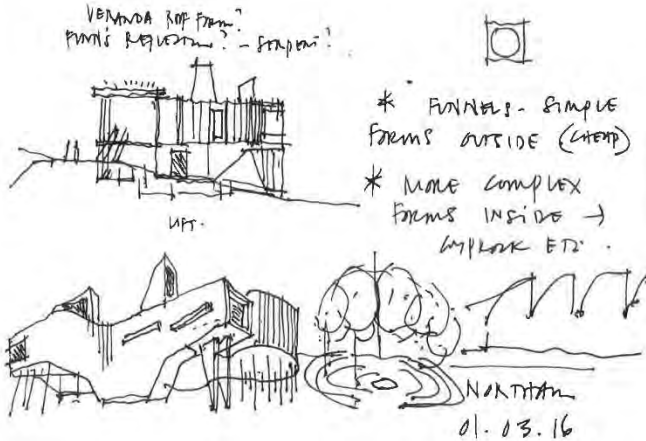 VERANDA ROOF FORM?
FUNNY REFLECTION? - SERPENT?
* FUNNELS - SIMPLE
FORMS OUTSIDE (CHEAP)
* MORE COMPLEX
FORMS INSIDE →
GYPROCK ETC.
LIFT.
NORTHAM
01.03.16